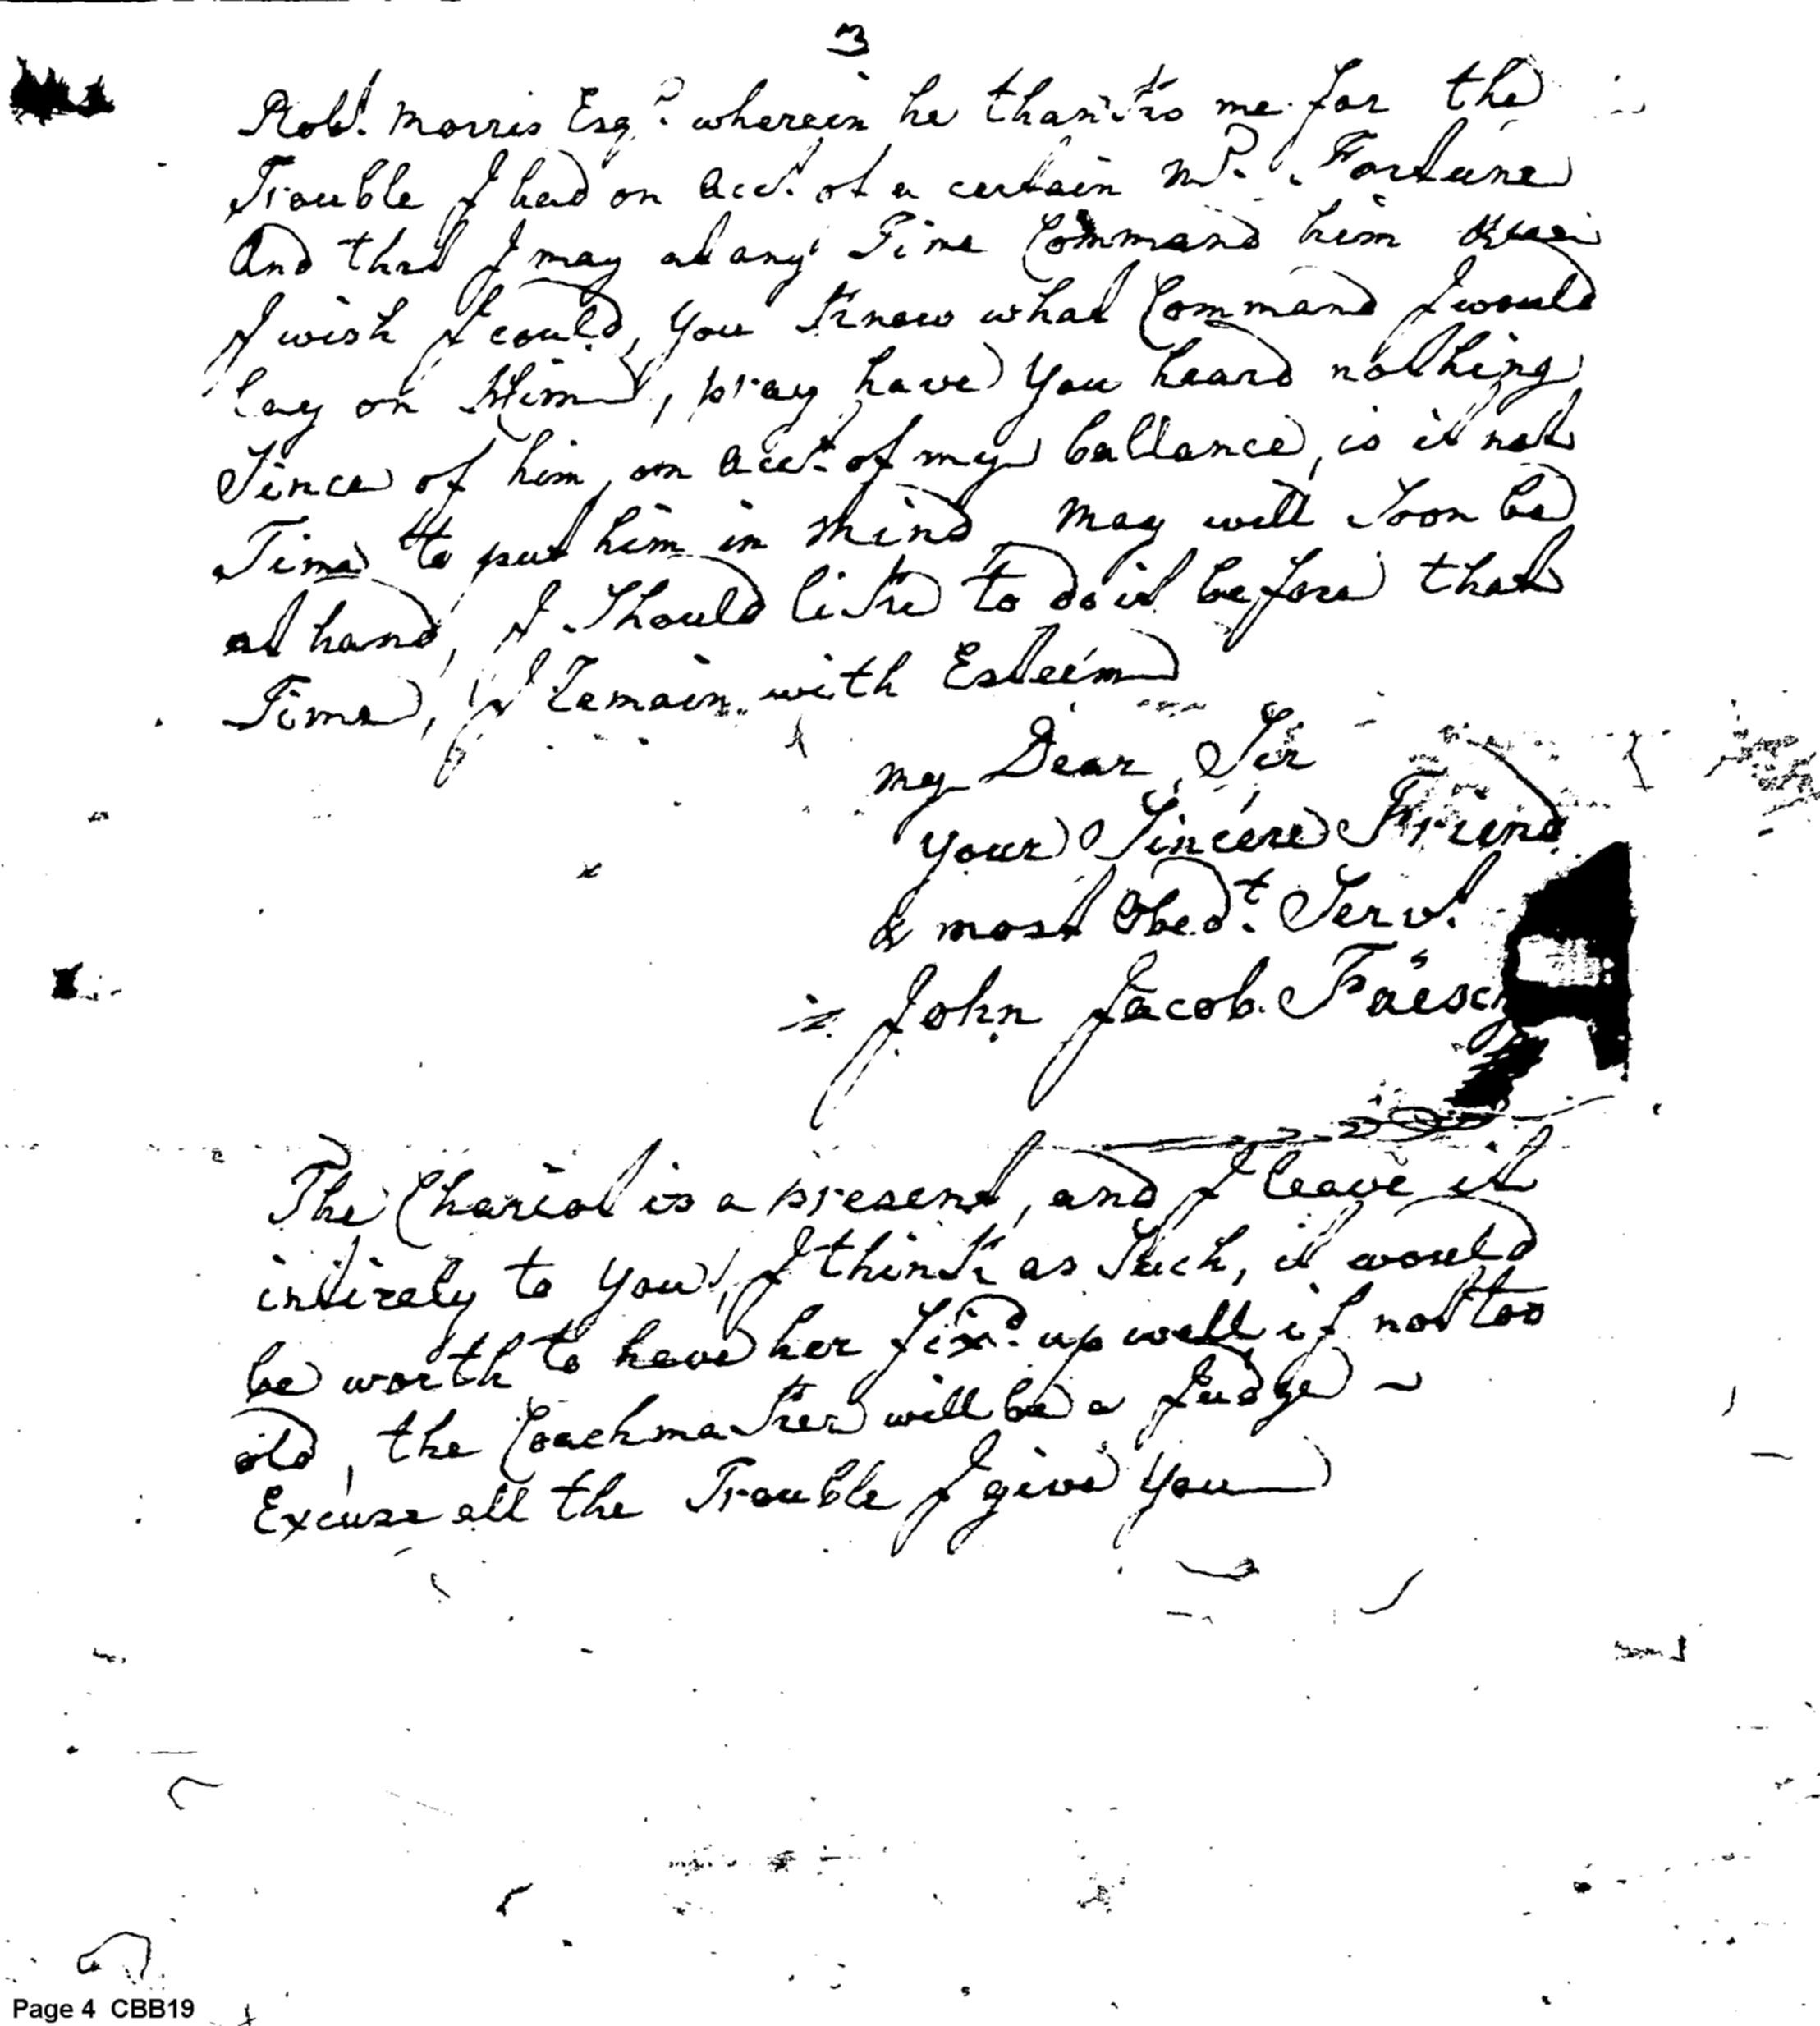 3
Robt. Morris Esqr. wherein he thanks me for the
Trouble I had on acct. of a certain Mr. Fortune
And that I may at any Time Command him
I wish I could, you know what Command I would
lay on Him, pray have you heard nothing
Since of him, on acct. of my ballance, is it not
Time to put him in Mind May will soon be
at hand, I Should like to do it before that
Time, I Remain with Esteem
my Dear Sir
your Sincere Friend
& most Obedt. Servt.
John Jacob Faesch
The Chariot is a present, and I leave it
intirely to you, I think as Such, it would
be worth to have her fixd. up well if not too
old, the Coachmaker will be a Judge ~
Excuse all the Trouble I give you
Page 4 CBB19